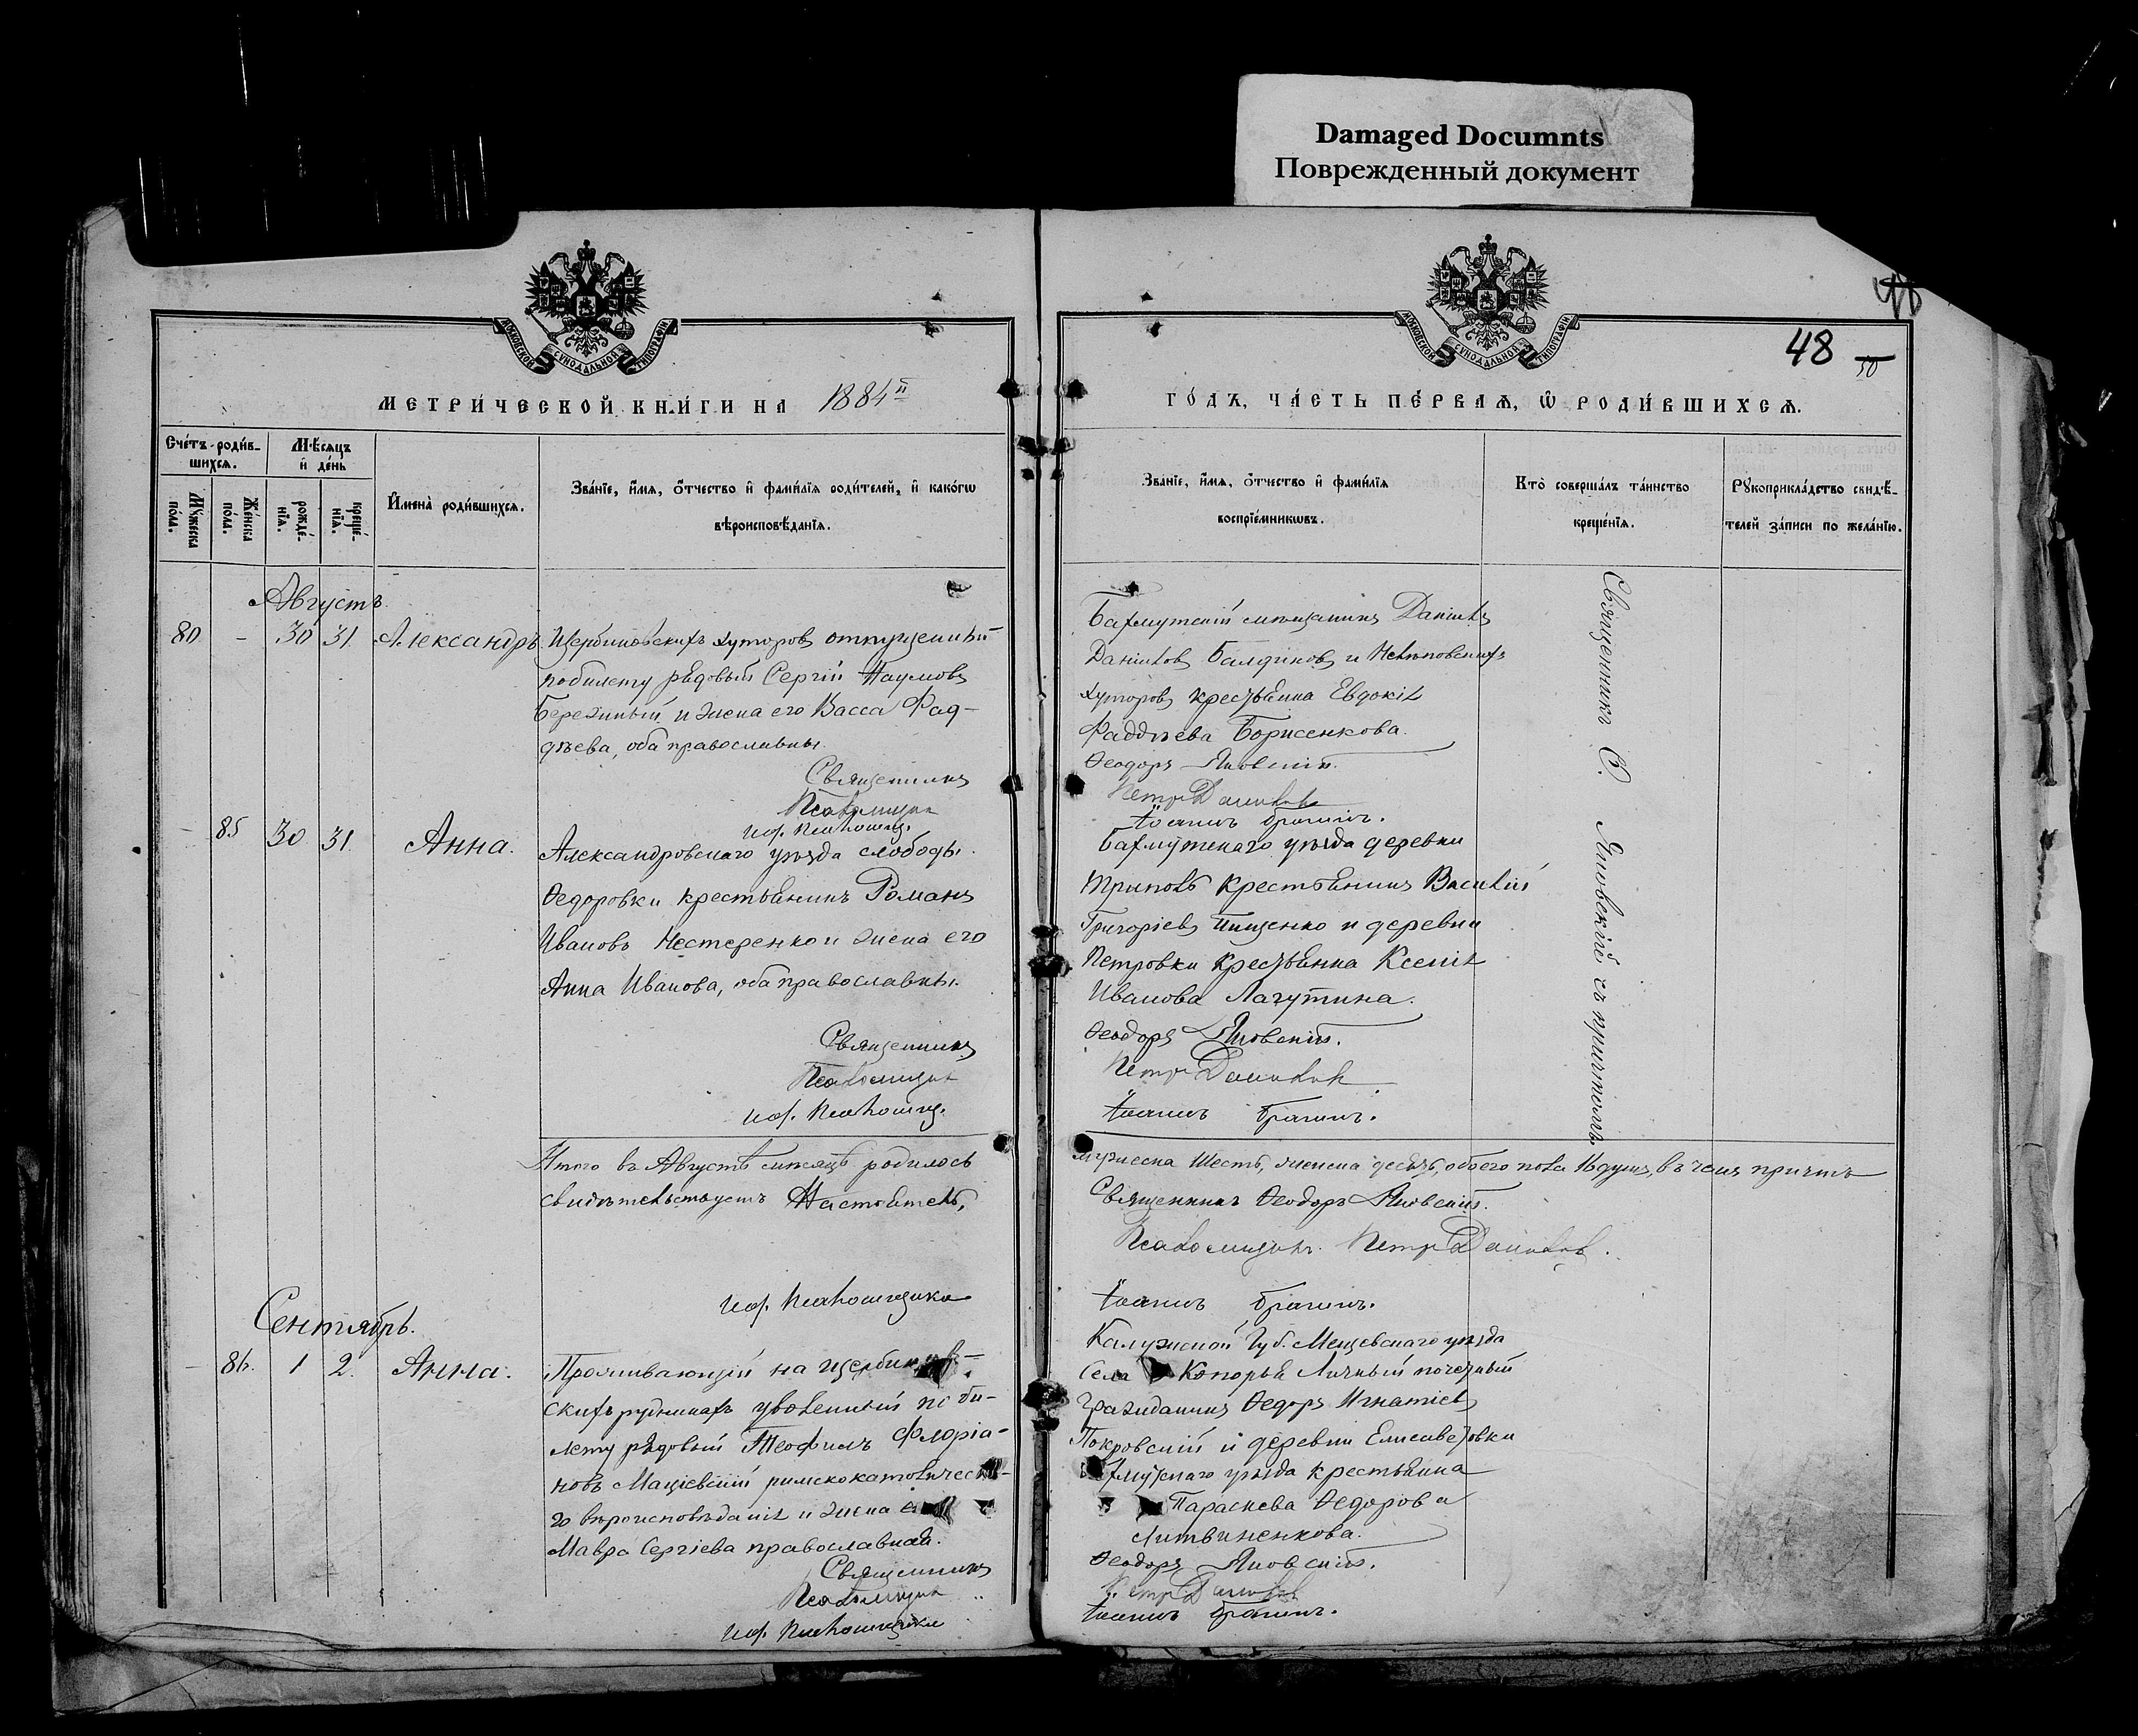 Damaged Documnts
Поврежденный документ
48
50
МОСКОВСКОЙ СУНОДАЛЬНОЙ ТИПОГРАФІИ
МОСКОВСКОЙ СУНОДАЛЬНОЙ ТИПОГРАФІИ
МЕТРИ́ЧЕСКОЙ КНИ́ГИ НА 1884й
ГО́ДЪ, ЧА́СТЬ ПЕ́РВАѦ, Ѡ҆ РОДИ́ВШИХСѦ.
Сче́тъ роди́в-
шихсѧ.
Мѣ́сѧцъ
и҆ де́нь
Мꙋ́жеска
по́ла.
Же́нска
по́ла.
рожде́-
нїѧ.
креще́-
нїѧ.
И҆мена̀ роди́вшихсѧ.
Зва́нїе, и҆́мѧ, ѻ҆́тчество и҆ фами́лїѧ роди́телей, и҆ како́гѡ
вѣроисповѣ́данїѧ.
Зва́нїе, и҆́мѧ, ѻ҆́тчество и҆ фами́лїѧ
воспрїе́мникѡвъ.
Кто̀ соверша́лъ та́инство
креще́нїѧ.
Рꙋкоприкла́дство свидѣ́-
телей за́писи по жела́нїю.
Августъ
80 - 30 31 Александръ.
Щербиновскихъ хуторовъ отпущенный
по билету рядовый Сергій Наумовъ
Бережный и жена его Васса Фад-
дѣева, оба православны.
Священникъ
Псаломщикъ
И. д. Псаломщ.
Бахмутскій мѣщанинъ Даніилъ
Даніиловъ Балдинов и Нелѣповскихъ
хуторовъ крестьянка Евдокія
Фаддѣева Борисенкова.
Ѳеодоръ Яновскій.
Петръ Даниловъ
Іоаннъ Брагинъ.
- 85 30 31 Анна.
Александровскаго уѣзда слободы
Ѳедоровки крестьянинъ Романъ
Ивановъ Нестеренко и жена его
Анна Иванова, оба православны.
Священникъ
Псаломщикъ
И. д. Псаломщ.
Бахмутскаго уѣзда деревни
крестьянинъ Василій
Григоріевъ Пищенко и деревни
Петровки крестьянка Ксенія
Иванова Лагутина.
Ѳеодоръ Яновскій.
Петръ Даниловъ
Іоаннъ Брагинъ.
Священникъ Ѳ. Яновскій съ причтомъ
Итого въ Августѣ мѣсяцѣ родилось
свидѣтельствуетъ Настоятель,
И. д. Псаломщика
мужеска шесть, женска десять, обоего пола 16 душъ, въ чемъ причтъ
Священникъ Ѳеодоръ Яновскій.
Псаломщикъ Петръ Даниловъ.
Іоаннъ Брагинъ.
Сентябрь.
- 86. 1 2. Анна.
Проживающій на Щербинов-
скихъ рудникахъ уволенный по би-
лету рядовый Теофилъ Флоріа-
новъ Маціевскій римскокатолическа-
го вѣроисповѣданія и жена его
Мавра Сергіева православная.
Священникъ
Псаломщикъ
И. д. Псаломщика
Калужской Губ. Мещевскаго уѣзда
Села Копорья Личный почетный
гражданинъ Ѳедоръ Игнатіевъ
Покровскій и деревни Елисаветовки
Бахмутскаго уѣзда крестьянка
Параскева Ѳедорова
Литвиненкова.
Ѳеодоръ Яновскій.
Петръ Даниловъ
Іоаннъ Брагинъ.